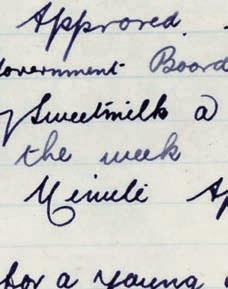 Approved.
Government Board
Sweetmilk a
the week
for a young